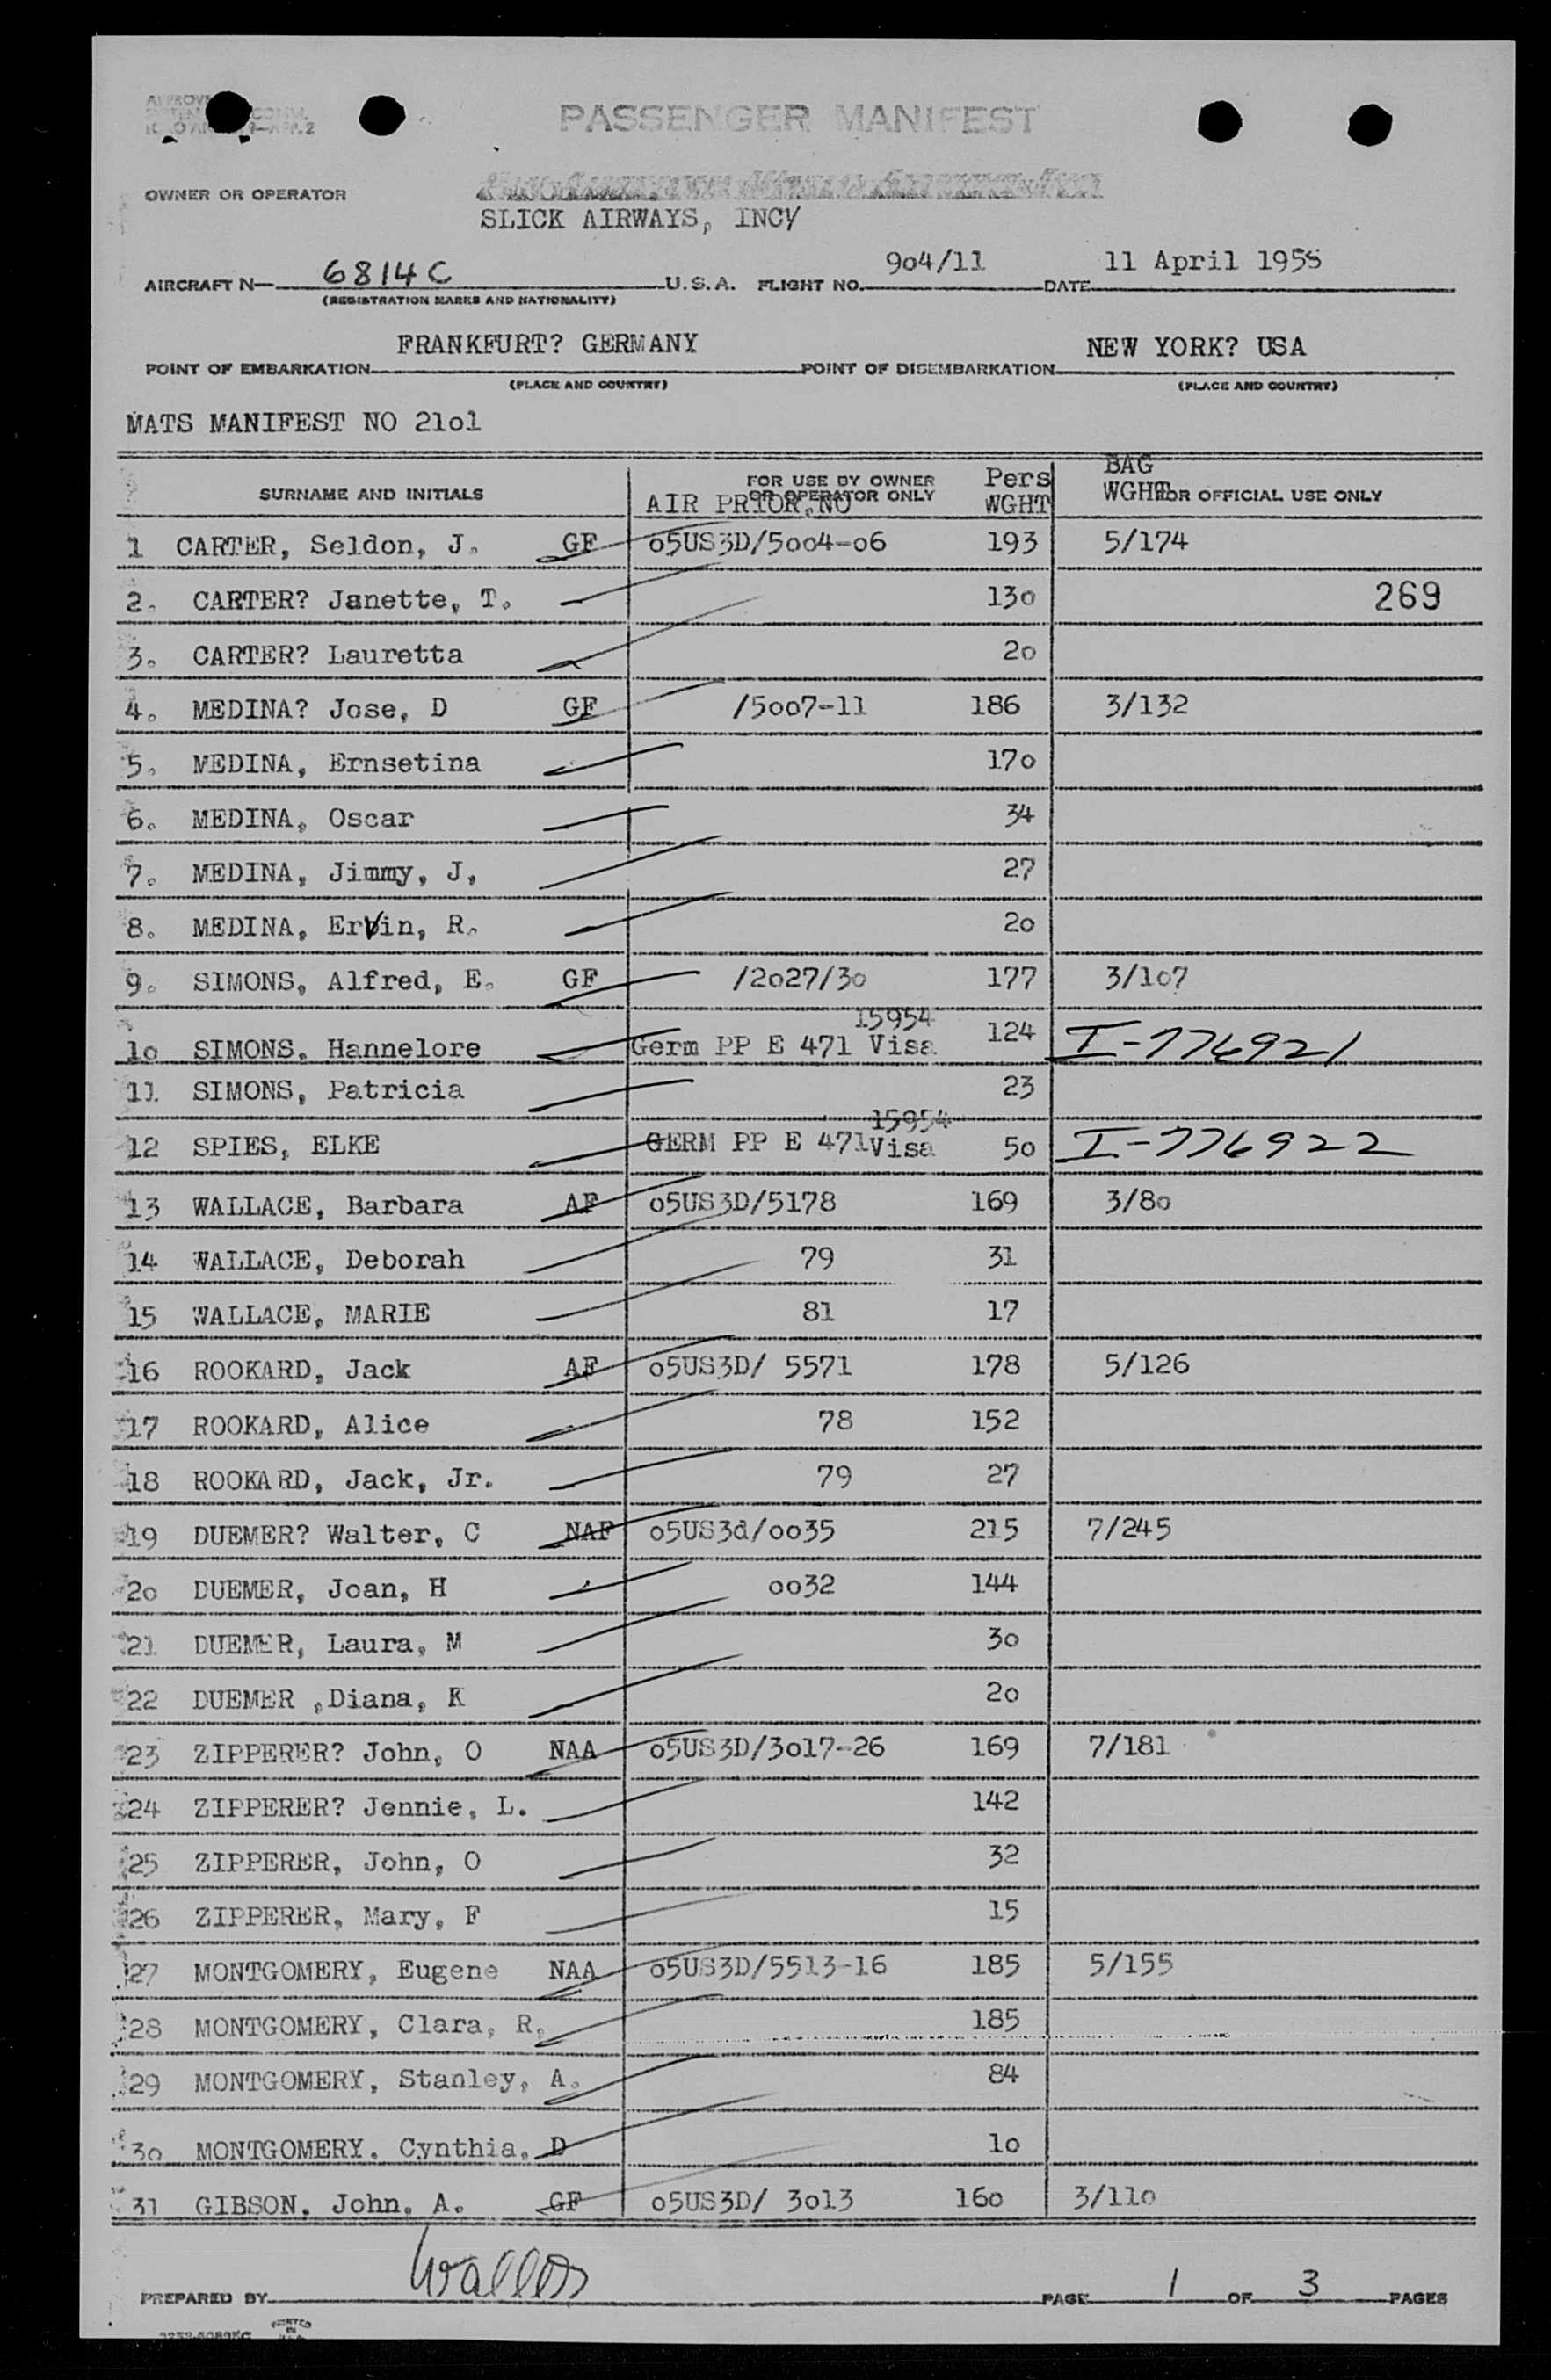 PASSENGER MANIFEST
OWNER OR OPERATOR
SLICK AIRWAYS, INCy
AIRCRAFT N— 6814C U.S.A. FLIGHT NO. 904/11 DATE 11 April 1958
(REGISTRATION MARKS AND NATIONALITY)
POINT OF EMBARKATION FRANKFURT? GERMANY POINT OF DISEMBARKATION NEW YORK? USA
(PLACE AND COUNTRY) (PLACE AND COUNTRY)
MATS MANIFEST NO 21o1
SURNAME AND INITIALS FOR USE BY OWNER OR OPERATOR ONLY AIR PRIOR.NO Pers WGHT BAG WGHT FOR OFFICIAL USE ONLY
1 CARTER, Seldon, J. GF o5US3D/5oo4-o6 193 5/174
2. CARTER? Janette, T. 13o 269
3. CARTER? Lauretta 2o
4. MEDINA? Jose, D GF /5oo7-11 186 3/132
5. MEDINA, Ernsetina 17o
6. MEDINA, Oscar 34
7. MEDINA, Jimmy, J, 27
8. MEDINA, Ervin, R. 2o
9. SIMONS, Alfred, E. GF /2o27/3o 177 3/1o7
1o SIMONS, Hannelore Germ PP E 471 Visa 15954 124 I-776921
11 SIMONS, Patricia 23
12 SPIES, ELKE GERM PP E 471 Visa 15954 5o I-776922
13 WALLACE, Barbara AF o5US3D/5178 169 3/8o
14 WALLACE, Deborah 79 31
15 WALLACE, MARIE 81 17
16 ROOKARD, Jack AF o5US3D/ 5571 178 5/126
17 ROOKARD, Alice 78 152
18 ROOKARD, Jack, Jr. 79 27
19 DUEMER? Walter, C NAF o5US3d/oo35 215 7/245
2o DUEMER, Joan, H oo32 144
21 DUEMER, Laura, M 3o
22 DUEMER ,Diana, K 2o
23 ZIPPERER? John, O NAA o5US3D/3o17-26 169 7/181
24 ZIPPERER? Jennie, L. 142
25 ZIPPERER, John, O 32
26 ZIPPERER, Mary, F 15
27 MONTGOMERY, Eugene NAA o5US3D/5513-16 185 5/155
28 MONTGOMERY, Clara, R, 185
29 MONTGOMERY, Stanley, A. 84
3o MONTGOMERY, Cynthia, D 1o
31 GIBSON, John, A. GF o5US3D/ 3o13 16o 3/11o
PREPARED BY PAGE 1 OF 3 PAGES